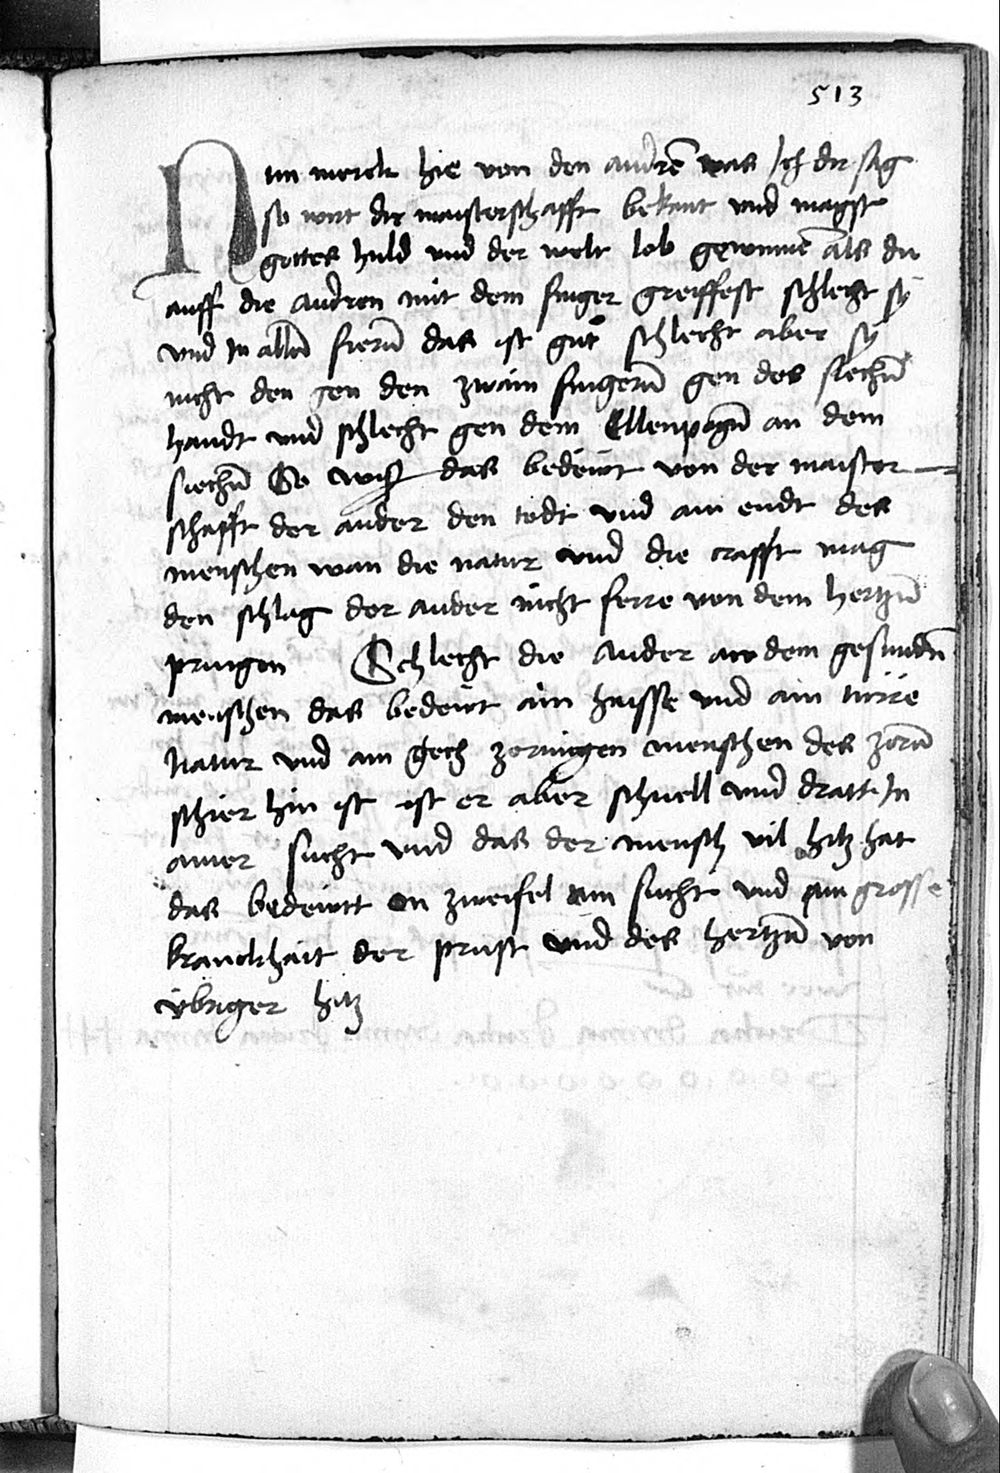 513
Nun merck hie von den andren̄ was Ich dir sag
so wirt dir maisterschafft bekant vnd magst
gottes huld vnd der welt lob gewinnē als du
auff die andren mit dem finger greiffest schlecht sy
vnd In allen̄ fierin̄ das ist gut schlecht aber sy
nicht den gen den zwain fingerin̄ gen des siechn̄
handt vnd schlecht gen dem Ellenpogn̄ an dem
siechn̄ So wiss das bedeiwt von der maister
schafft der ander den todt vnd ain endt des
menschen wan die natur vnd die crafft mag
den schlag der ander nicht ferre von dem hertzn̄
pringen Schlecht die ander an dem gesunden̄
menschen das bedeiwt ain haisse vnd ain türre
Natur vnd ain gech zornigen menschen des zorn̄
schier hin ist ist er aber schnell vnd dratt In
ainer sucht vnd das der mensch vil hitz hat
das bedeiwtt on zweifel ain sucht vnd ain grosse
kranckhait der prust vnd des hertzn̄ von
vbriger hitz